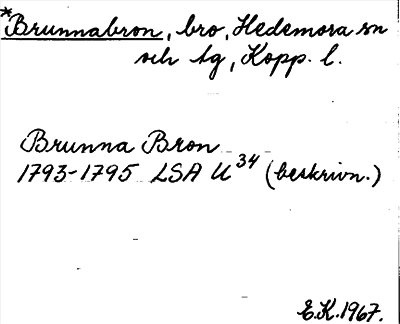 *Brunnabron, bro, Hedemora sn
och tg, Kopp. l.
Brunna Bron
1793-1795 LSA U³⁴ (beskrivn.)
E.K. 1967.